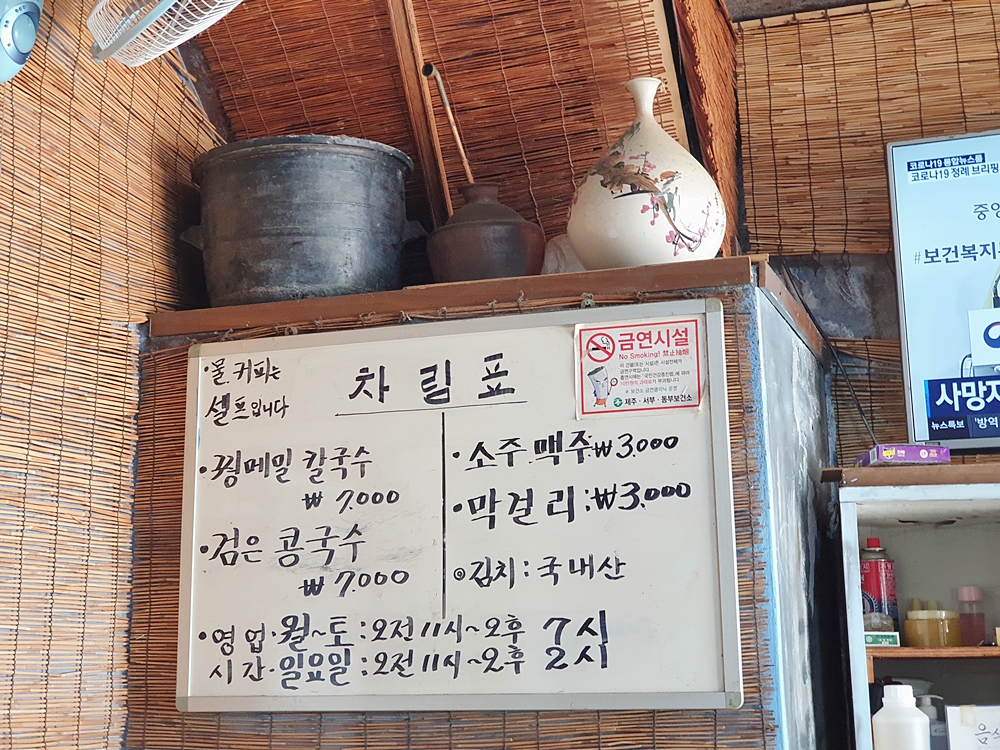 ·물. 커피는
셀프입니다
차림표
금연시설
No Smoking! 禁止抽烟
제주·서부·동부보건소
·꿩메밀 칼국수
₩ 7.000
·검은 콩국수
₩ 7.000
·소주 맥주 ₩3.000
·막걸리:₩3.000
◎김치:국내산
·영업·월~토:오전 11시~오후 7시
시간·일요일:오전 11시~오후 2시
코로나19 통합뉴스룸
코로나19 정례 브리핑
중앙
#보건복지
사망자
뉴스특보 '방역
음식